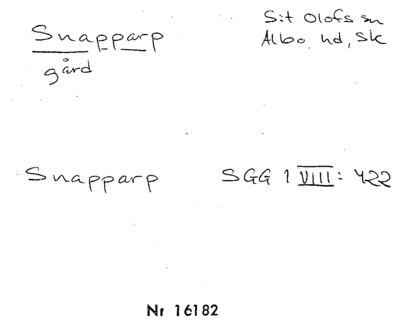 Snapparp
gård
S:t Olofs sn
Albo hd, Sk
Snapparp SGG 1 VIII: 422
Nr 16182